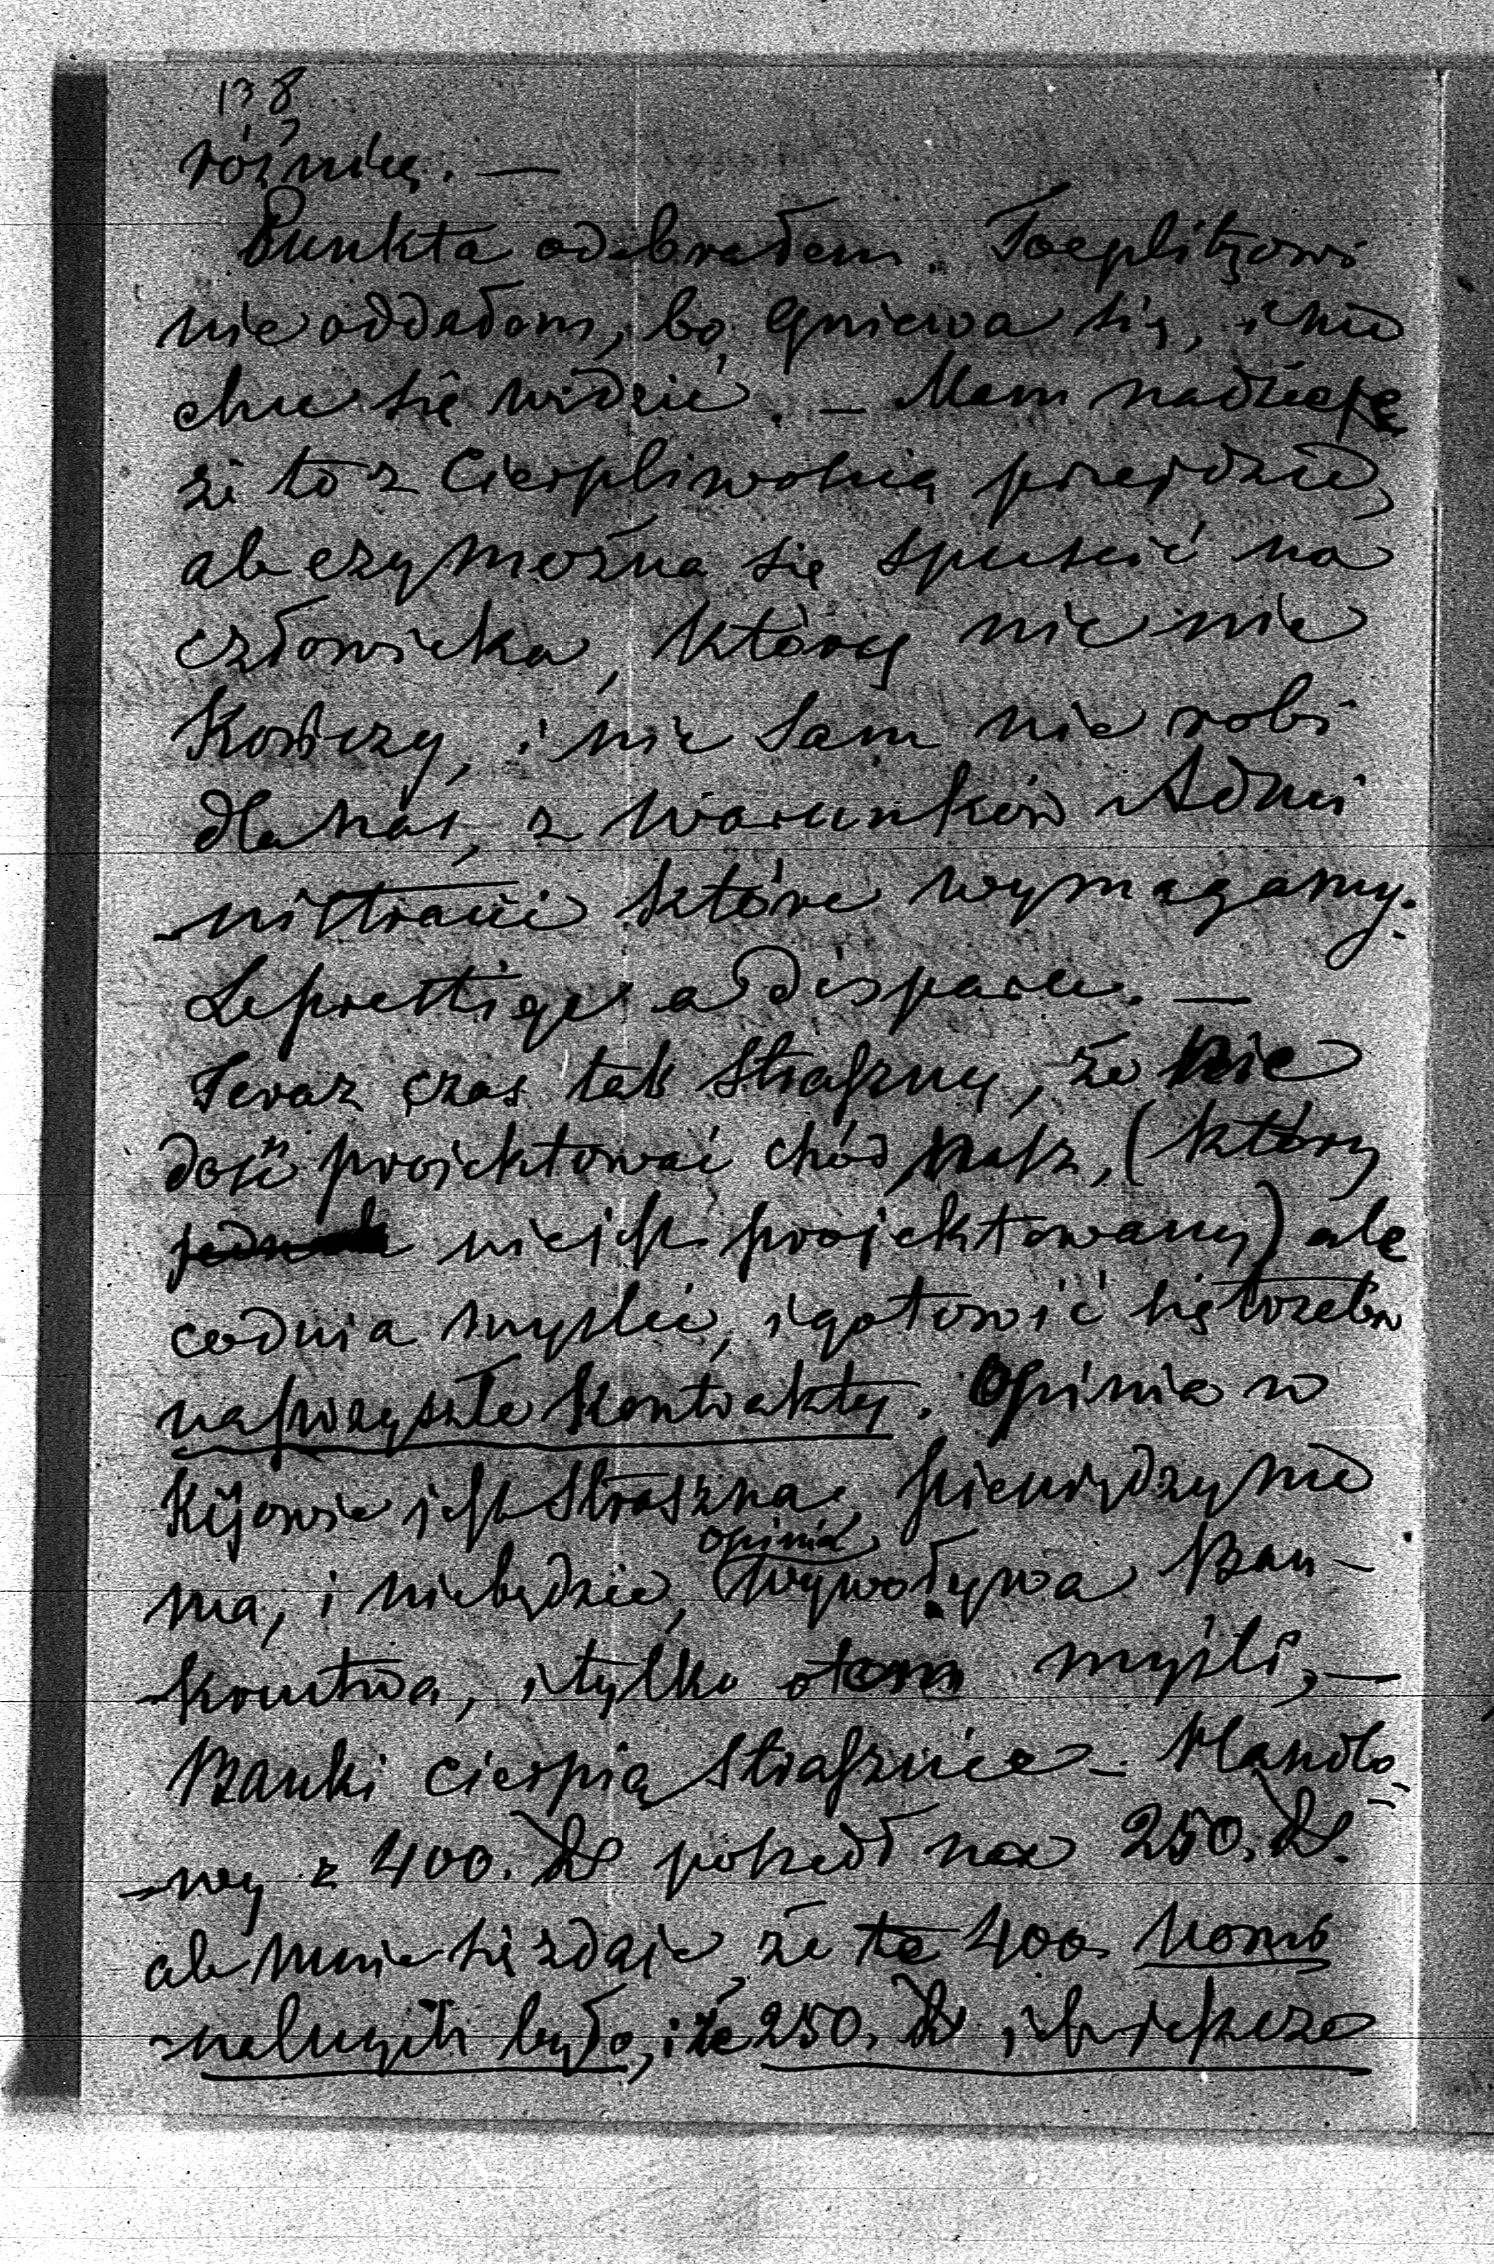 138
różnicą. —
Punkta odebrałem. Toeplitzowi
nie oddałem, bo gniewa się, i nie
chce się widzieć. — Mam nadzieję
że to z cierpliwością przejdzie,
ale czy można się spuścić na
człowieka, który nic nie
kończy, i nic sam nie robi
dla nas, z warunków Admi
-nistracii które wymagamy.
Le prestige a disparu. —
Teraz czas tak straszny, że nie
dość projektować chód nasz, (który
jednak nie jest projektowany) ale
codnia myśleć, i gotowić się trzeba
na przyszłe Kontrakty. Opinia w
Kijowie jest straszna, pieniędzy nie
ma, i niebędzie, opinia wywoływa Ban-
-kructwa, i tylko o tem myśli, —
Banki cierpią strasznie — Handlo-
-wy z 400. Rs poszedł na 250. Rs.
ale mnie się zdaje, że te 400
było, i że 250. Rs